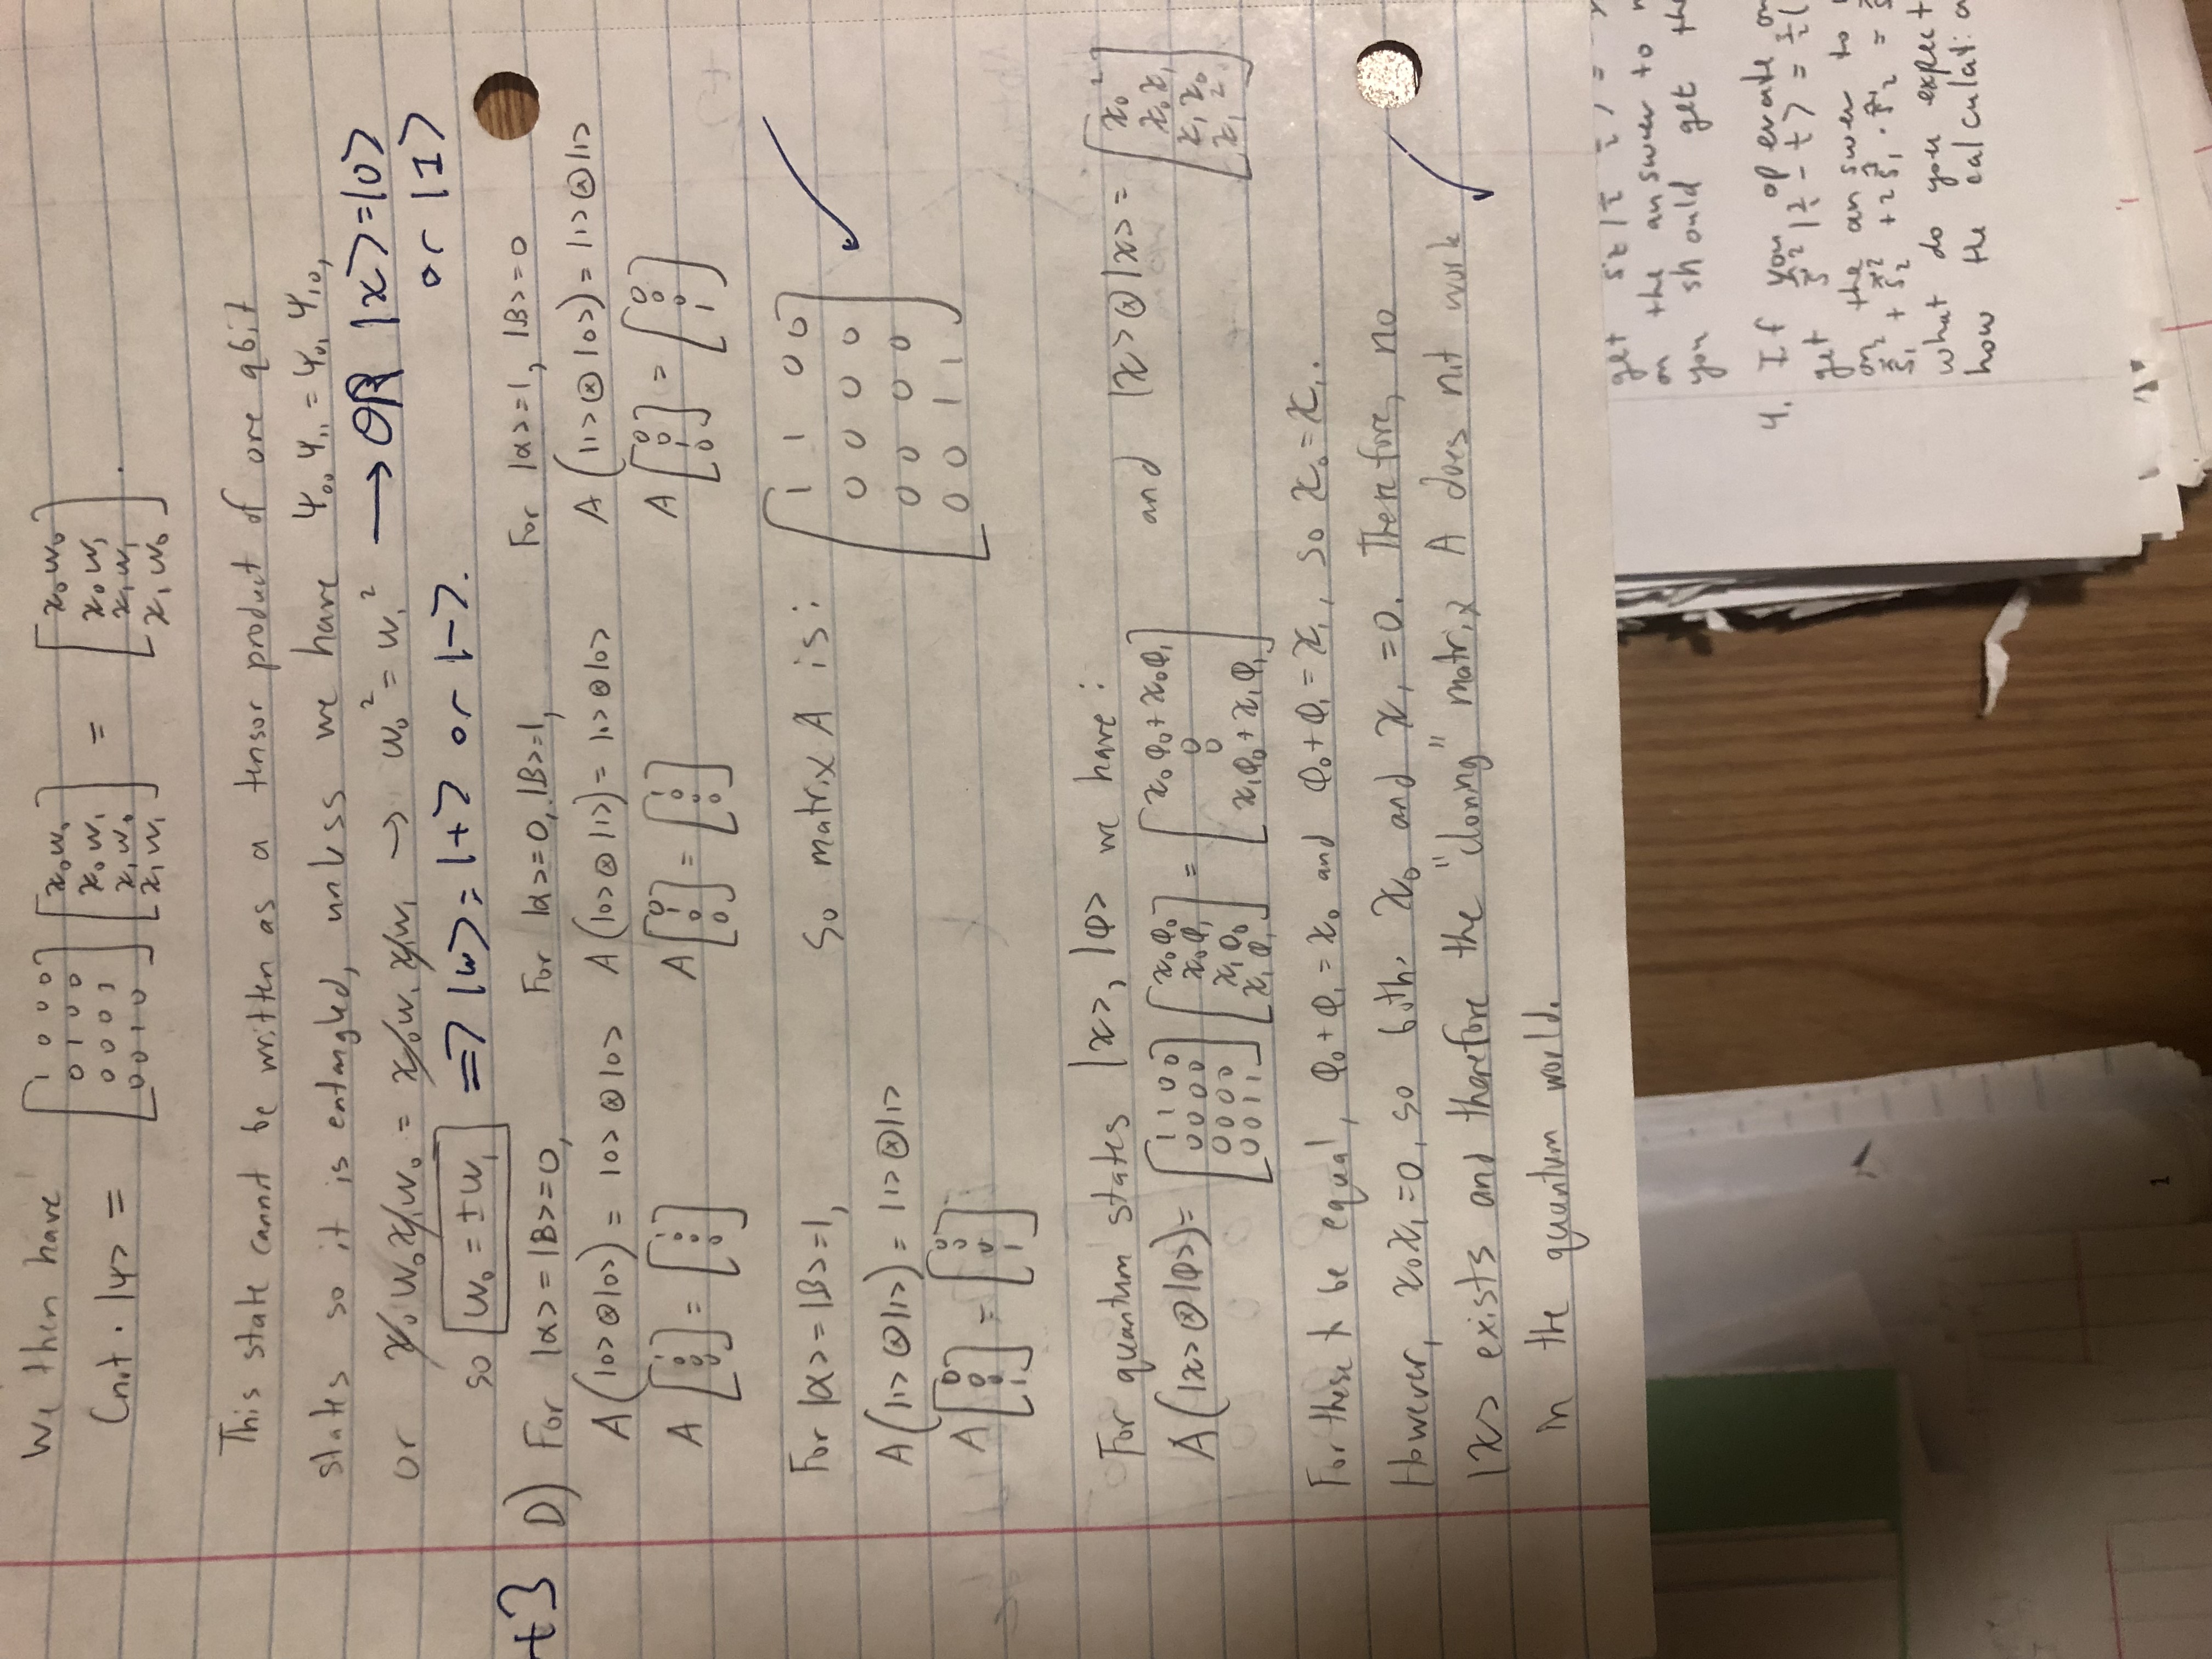 We then have
Cnot · |ψ> = [1 0 0 0; 0 1 0 0; 0 0 0 1; 0 0 1 0] [x₀w₀; x₀w₁; x₁w₀; x₁w₁] = [x₀w₀; x₀w₁; x₁w₁; x₁w₀].
This state cannot be written as a tensor product of one qbit
states so it is entangled, unless we have ψ₀₀ψ₁₁ = ψ₀₁ψ₁₀,
or x₀w₀x₁w₀ = x₀w₁x₁w₁ → w₀² = w₁² → OR |x>=|0>
or |1>
so w₀ = ±w₁ => |w> = |+> or |->.
+3 D) For |α>=|β>=0, For |α>=0, |β>=1, For |α>=1, |β>=0
A(|0>⊗|0>) = |0>⊗|0> A(|0>⊗|1>) = |0>⊗|0> A(|1>⊗|0>) = |1>⊗|1>
A [1; 0; 0; 0] = [1; 0; 0; 0] A [0; 1; 0; 0] = [1; 0; 0; 0] A [0; 0; 1; 0] = [0; 0; 0; 1]
For |α>=|β>=1, So matrix A is: [1 1 0 0; 0 0 0 0; 0 0 0 0; 0 0 1 1] ✓
A(|1>⊗|1>) = |1>⊗|1>
A [0; 0; 0; 1] = [0; 0; 0; 1]
For quantum states |x>, |φ> we have:
A(|x>⊗|φ>) = [1 1 0 0; 0 0 0 0; 0 0 0 0; 0 0 1 1] [x₀φ₀; x₀φ₁; x₁φ₀; x₁φ₁] = [x₀φ₀+x₀φ₁; 0; 0; x₁φ₀+x₁φ₁] and |x>⊗|x> = [x₀²; x₀x₁; x₁x₀; x₁²]
For these to be equal, φ₀+φ₁=x₀ and φ₀+φ₁=x₁, so x₀=x₁.
However, x₀x₁=0, so both x₀ and x₁=0. Therefore, no
|x> exists and therefore the "cloning" matrix A does not work ✓
in the quantum world.
get
on the answer to
you should get
4. If you operate
get
on the answer to
what do you expect
how the
1